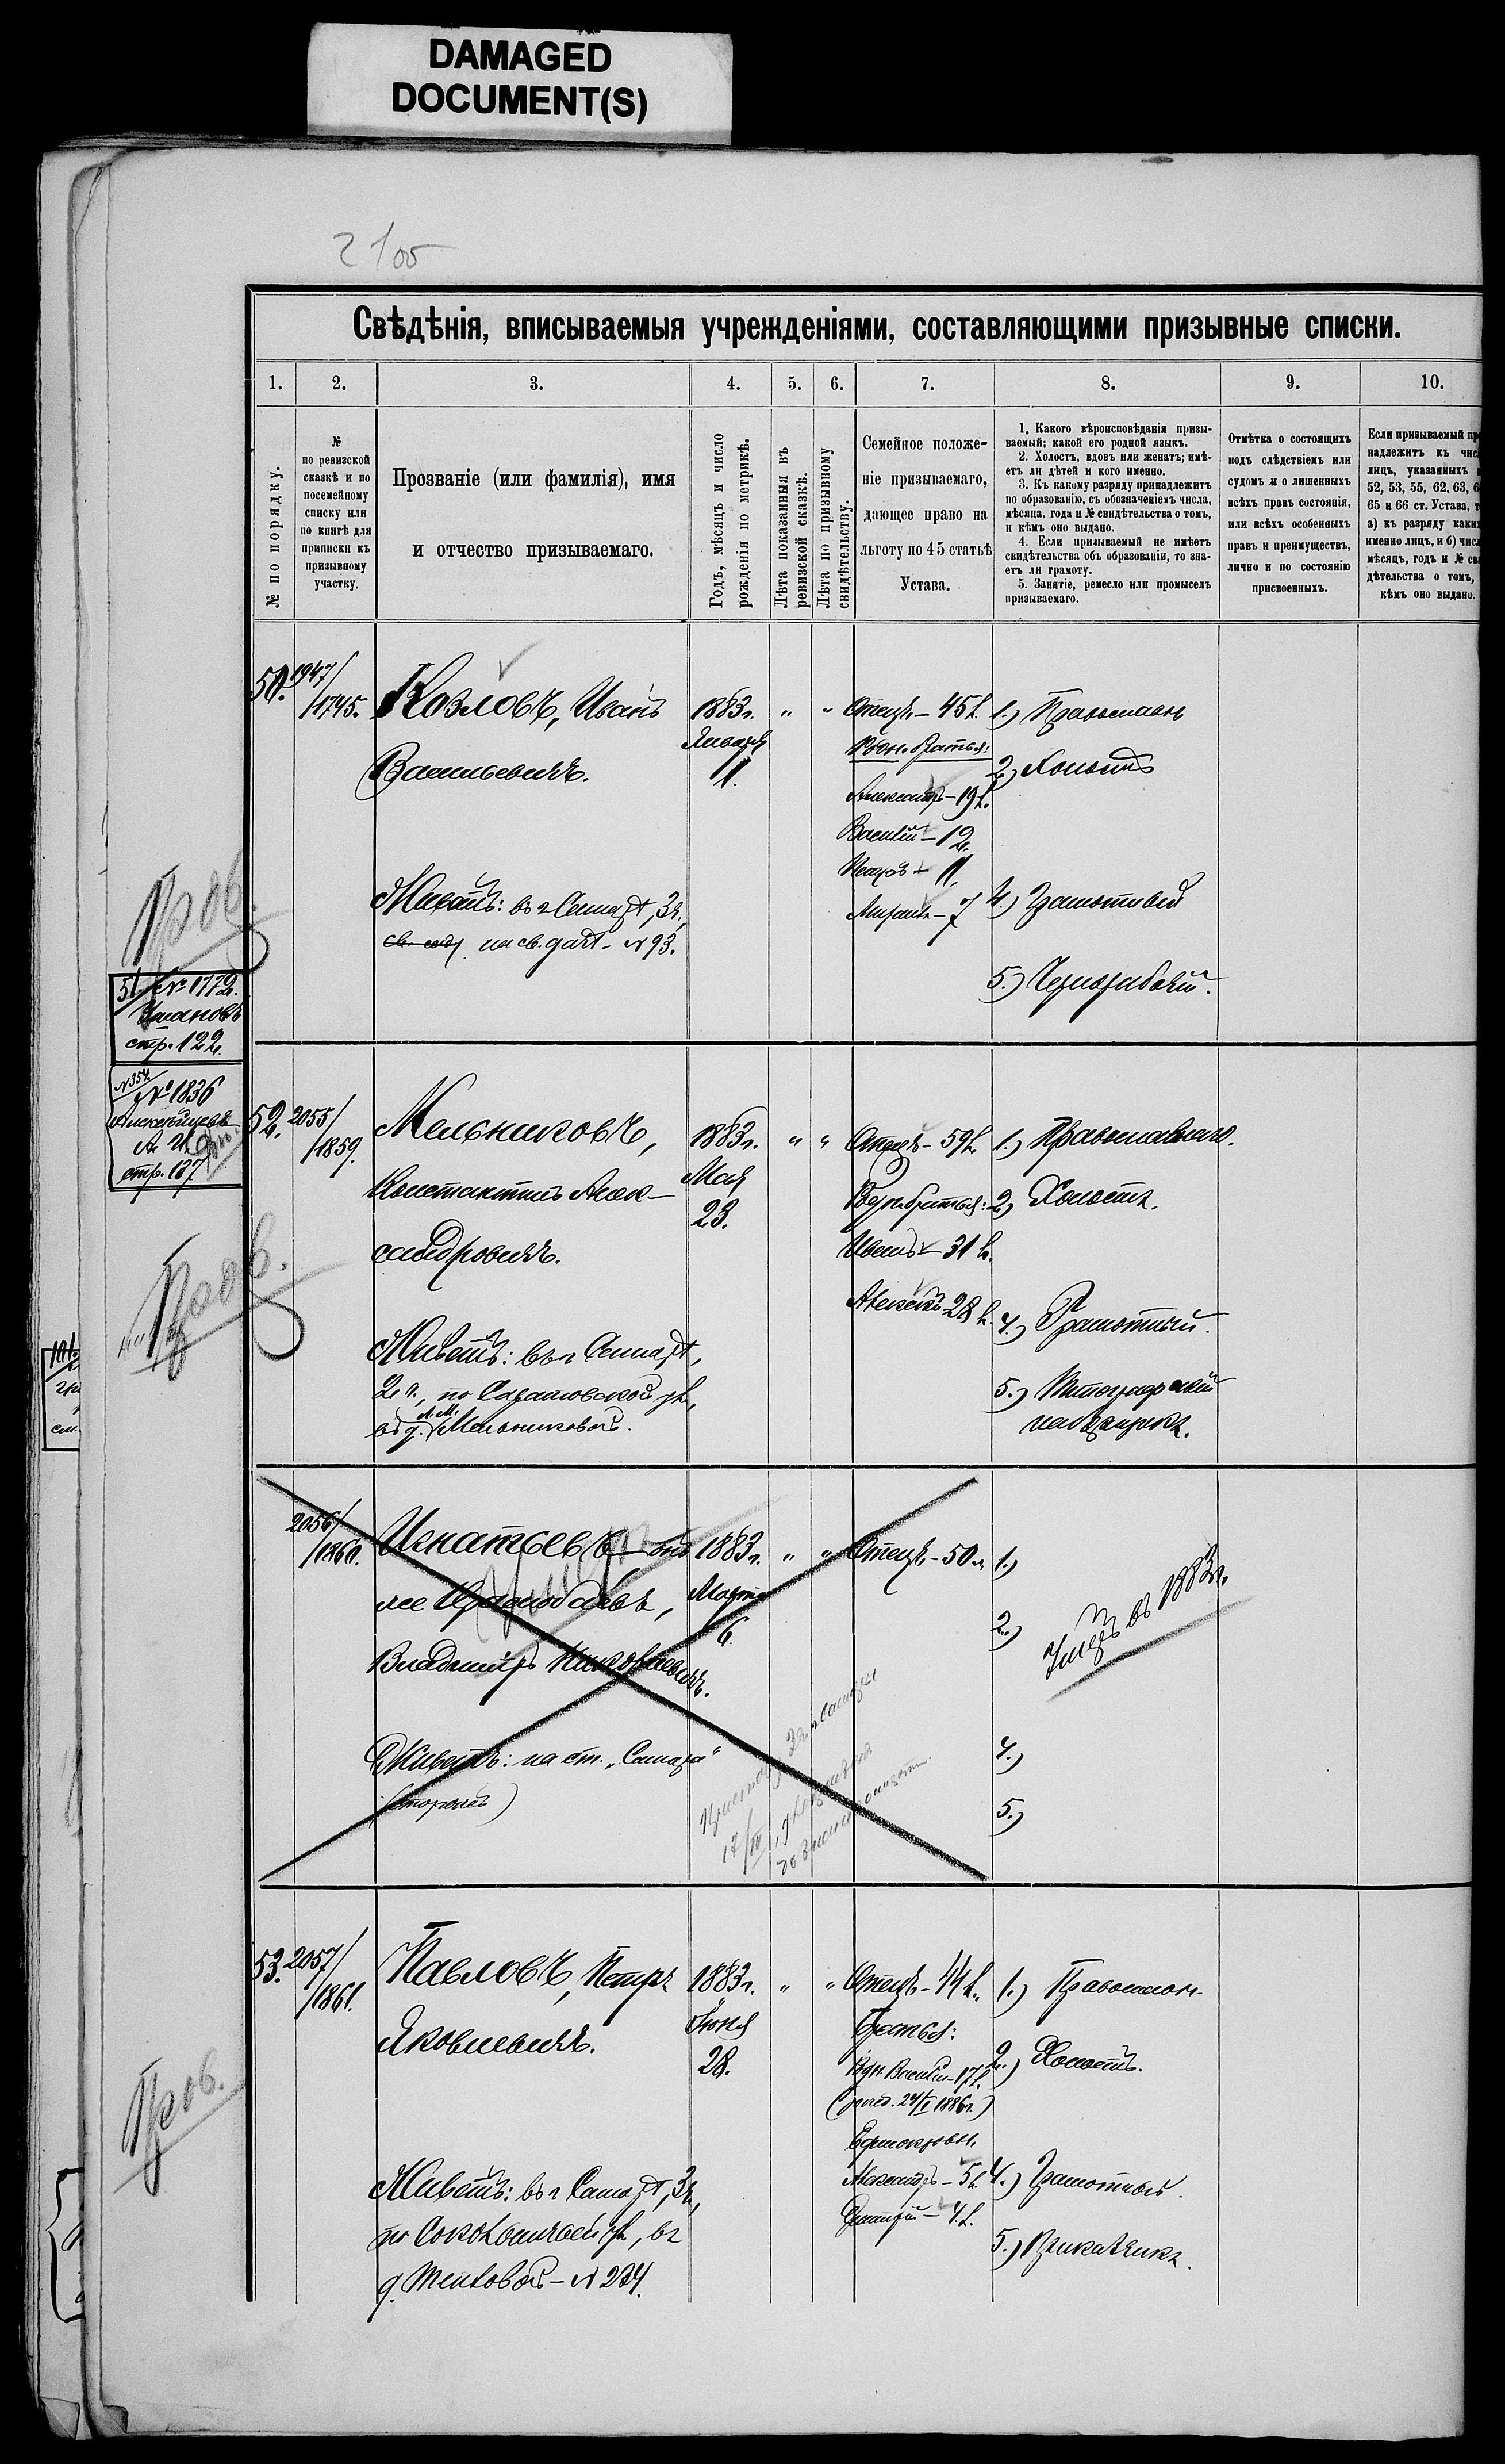 DAMAGED
DOCUMENT(S)
Свѣдѣнія, вписываемыя учрежденіями, составляющими призывные списки.
1. 2. 3. 4. 5. 6. 7. 8. 9. 10.
№ по порядку.
№
по ревизской
сказкѣ и по
посемейному
списку или
по книгѣ для
приписки къ
призывному
участку.
Прозваніе (или фамилія), имя
и отчество призываемаго.
Годъ, мѣсяцъ и число
рожденія по метрикѣ.
Лѣта показанныя въ
ревизской сказкѣ.
Лѣта по призывному
свидѣтельству.
Семейное положе-
ніе призываемаго,
дающее право на
льготу по 45 статьѣ
Устава.
1. Какого вѣроисповѣданія призы-
ваемый; какой его родной языкъ.
2. Холостъ, вдовъ или женатъ; имѣ-
етъ ли дѣтей и кого именно.
3. Къ какому разряду принадлежитъ
по образованію, съ обозначеніемъ числа,
мѣсяца, года и № свидѣтельства о томъ,
и кѣмъ оно выдано.
4. Если призываемый не имѣетъ
свидѣтельства объ образованіи, то зна-
етъ ли грамоту.
5. Занятіе, ремесло или промыселъ
призываемаго.
Отмѣтка о состоящихъ
подъ слѣдствіемъ или
судомъ и о лишенныхъ
всѣхъ правъ состоянія,
или всѣхъ особенныхъ
правъ и преимуществъ,
лично и по состоянію
присвоенныхъ.
Если призываемый пр
надлежитъ къ чис
лицъ, указанныхъ
52, 53, 55, 62, 63, 6
65 и 66 ст. Устава, т
а) къ разряду каки
именно лицъ, и б) числ
мѣсяцъ, годъ и № св
дѣтельства о томъ,
кѣмъ оно выдано.
50. 1947/
/1745.
Козловъ, Иванъ
Васильевичъ.
Живетъ: въ г Самарѣ, 3 ч.,
на св. дачѣ - № 93.
1883 г.
Января
1.
" "
Отецъ - 45 л.
братья:
Александръ - 19 л.
Василій - 12.
11.
7
1.) Православн
2.) Холостъ
4.) Грамотный
5.) Чернорабочій.
Пров.
51. № 1772.
стр. 122.
№ 1836
стр. 137
52. 2055/
/1859.
Мельниковъ,
Константинъ Алек-
сандровичъ.
Живетъ: въ г Самарѣ,
2 ч., по Саратовской ул.,
въ д. А. М. Мельниковой.
1883 г.
Мая
23.
" "
Отецъ - 59 л.
братья:
Иванъ - 31 л.
Алексѣй 28 л.
1.) Православнаго.
2.) Холостъ.
4.) Грамотный.
5.) Типографскій
наборщикъ.
Пров.
2056/
/1860.
Игнатьевъ - онъ
же
Владиміръ Николаевичъ.
Живетъ: на ст. „Самара"
(сторожъ)
1883 г.
Марта
6.
" "
Отецъ - 50 л.
1.)
2.)
4.)
5.)
Умеръ въ 1883 г.
53. 2057/
/1861.
Павловъ, Петръ
Яковлевичъ.
Живетъ: въ г Самарѣ, 3 ч.,
по Соколовичьей ул., въ
1883 г.
Іюня
28.
" "
Отецъ - 44 л.
братья:
Василій - 17 л.
1886 г.)
Единокровн.
Александръ - 5 л.
Дмитрій - 4 л.
1.) Православн.
2.) Холостъ.
4.) Грамотный.
5.) Прикащикъ.
Пров.